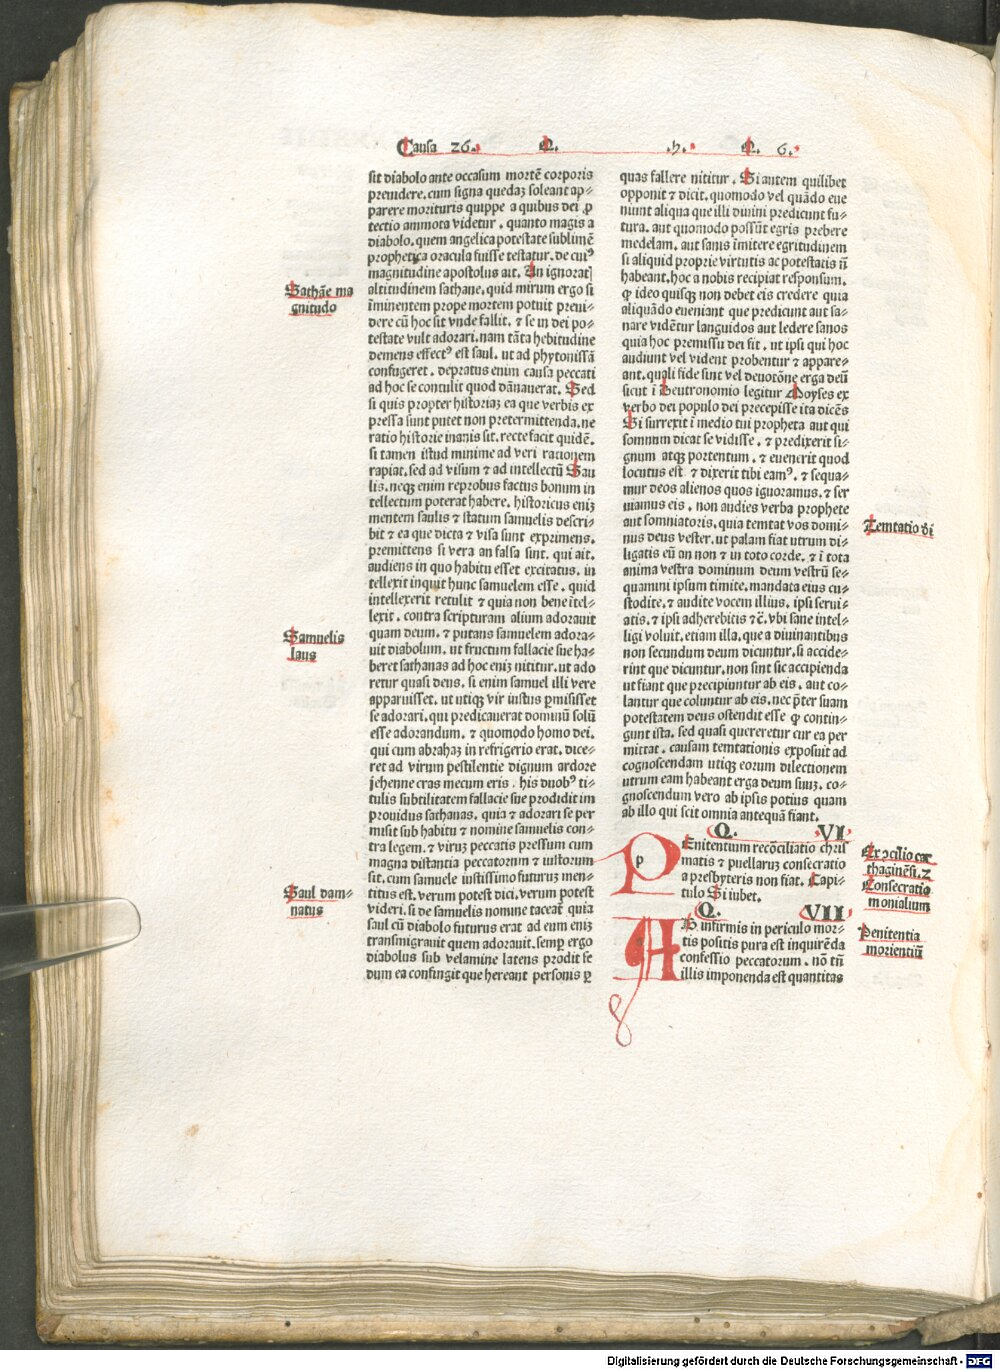 Causa 26. Q. .h. Q. 6.
sit diabolo ante occasum mortē corporis
prendere. cum signa quedaꝫ soleant ap-
parere morituris quippe a quibus dei ꝓ
tectio ammota videtur. quanto magis a
diabolo. quem angelica potestate sublimē
prophetica oracula fuisse testatur. de cuiꝰ
magnitudine apostolus ait. An ignorat
altitudinem sathane. quid mirum ergo si
īminentem prope mortem potuit previ-
dere cū hoc sit vnde fallit. ⁊ se in dei po-
testate vult adorari. nam tāta hebitudine
demens effectꝰ est saul. ut ad phytonissā
confugeret. depratus enim causa peccati
ad hoc se contulit quod dānauerat. Sed
si quis propter historiaꝫ ea que verbis ex
pressa sunt putet non pretermittenda. ne
ratio historie inanis sit. recte facit quidē.
si tamen istud minime ad veri rationem
rapiat. sed ad visum ⁊ ad intellectū Sau
lis. neqꝫ enim reprobus factus bonum in
tellectum poterat habere. historicus eniꝫ
mentem saulis ⁊ statum samuelis descri-
bit ⁊ ea que dicta ⁊ visa sunt exprimens.
premittens si vera an falsa sint. qui ait.
audiens in quo habitu esset excitatus. in
tellexit inquit hunc samuelem esse. quid
intellexerit retulit ⁊ quia non bene ītel-
lexit. contra scripturam alium adorauit
quam deum. ⁊ putans samuelem adora-
uit diabolum. ut fructum fallacie sue ha-
beret sathanas ad hoc eniꝫ nititur. ut ado
retur quasi deus. si enim samuel illi vere
apparuisset. ut utiqꝫ vir iustus ꝑmisisset
se adorari. qui predicauerat dominū solū
esse adorandum. ⁊ quomodo homo dei.
qui cum abrahaꝫ in refrigerio erat. dice-
ret ad virum pestilentie dignum ardore
jehenne cras mecum eris. his duobꝰ ti-
tulis subtilitatem fallacie sue prodidit im
prouidus sathanas. quia ⁊ adorari se per
misit sub habitu ⁊ nomine samuelis con-
tra legem. ⁊ viruꝫ peccatis pressum cum
magna distantia peccatorum ⁊ iustorum
sit. cum samuele iustissimo futuruꝫ men-
titus est. verum potest dici. verum potest
videri. si de samuelis nomine taceat quia
saul cū diabolo futurus erat ad eum eniꝫ
transmigrauit quem adorauit. semꝑ ergo
diabolus sub velamine latens prodit se
dum ea confingit que hereant personis ꝑ
Sathāe ma
gnitudo
Samuelis
laus
Saul dam-
natus
quas fallere nititur. Si autem quilibet
opponit ⁊ dicit. quomodo vel quādo eue
niunt aliqua que illi diuini predicunt fu-
tura. aut quomodo possūt egris prebere
medelam. aut sanis īmitere egritudinem
si aliquid proprie virtutis ac potestatis nō
habeant. hoc a nobis recipiat responsum.
ꝙ ideo quisqꝫ non debet eis credere quia
aliquādo eueniant que predicunt aut sa-
nare vidētur languidos aut ledere sanos
quia hoc premissu dei fit. ut ipsi qui hoc
audiunt vel vident probentur ⁊ appare-
ant. quali fide sint vel deuotōne erga deū
sicut ī Deutronomio legitur Moyses ex
verbo dei populo dei precepisse ita dicēs
Si surrexit ī medio tui propheta aut qui
somnium dicat se vidisse. ⁊ predixerit si-
gnum atqꝫ portentum. ⁊ euenerit quod
locutus est ⁊ dixerit tibi eamꝰ. ⁊ sequa-
mur deos alienos quos ignoramus. ⁊ ser
uiamus eis. non audies verba prophete
aut somniatoris. quia temtat vos domi-
nus deus vester. ut palam fiat utrum di-
ligatis eū an non ⁊ in toto corde. ⁊ ī tota
anima vestra dominum deum vestrū se-
quamini ipsum timite. mandata eius cu-
stodite. ⁊ audite vocem illius. ipsi serui-
atis. ⁊ ipsi adherebitis ⁊ c̄. vbi sane intel-
ligi voluit. etiam illa. que a diuinantibus
non secundum deum dicuntur. si accide-
rint que dicuntur. non sint sic accipienda
ut fiant que precipiuntur ab eis. aut co-
lantur que coluntur ab eis. nec p̄ter suam
potestatem deus ostendit esse ꝙ contin-
gunt ista. sed quasi quereretur cur ea per
mittat. causam temtationis exposuit ad
cognoscendam utiqꝫ eorum dilectionem
utrum eam habeant erga deum suuꝫ. co-
gnoscendum vero ab ipsis potius quam
ab illo qui scit omnia antequā fiant.
Q. VI
p PEnitentium recōciliatio chris
matis ⁊ puellaruꝫ consecratio
a presbyteris non fiat. Capi-
tulo Si iubet.
Q. VII
AB infirmis in periculo mor-
tis positis pura est inquirēda
confessio peccatorum. nō tn̄
illis imponenda est quantitas
Temtatio d̄i
Ex ↄcilio car
thaginēsi. 2
Consecratio
monialium
Penitentia
morientiū
Digitalisierung gefördert durch die Deutsche Forschungsgemeinschaft - DFG